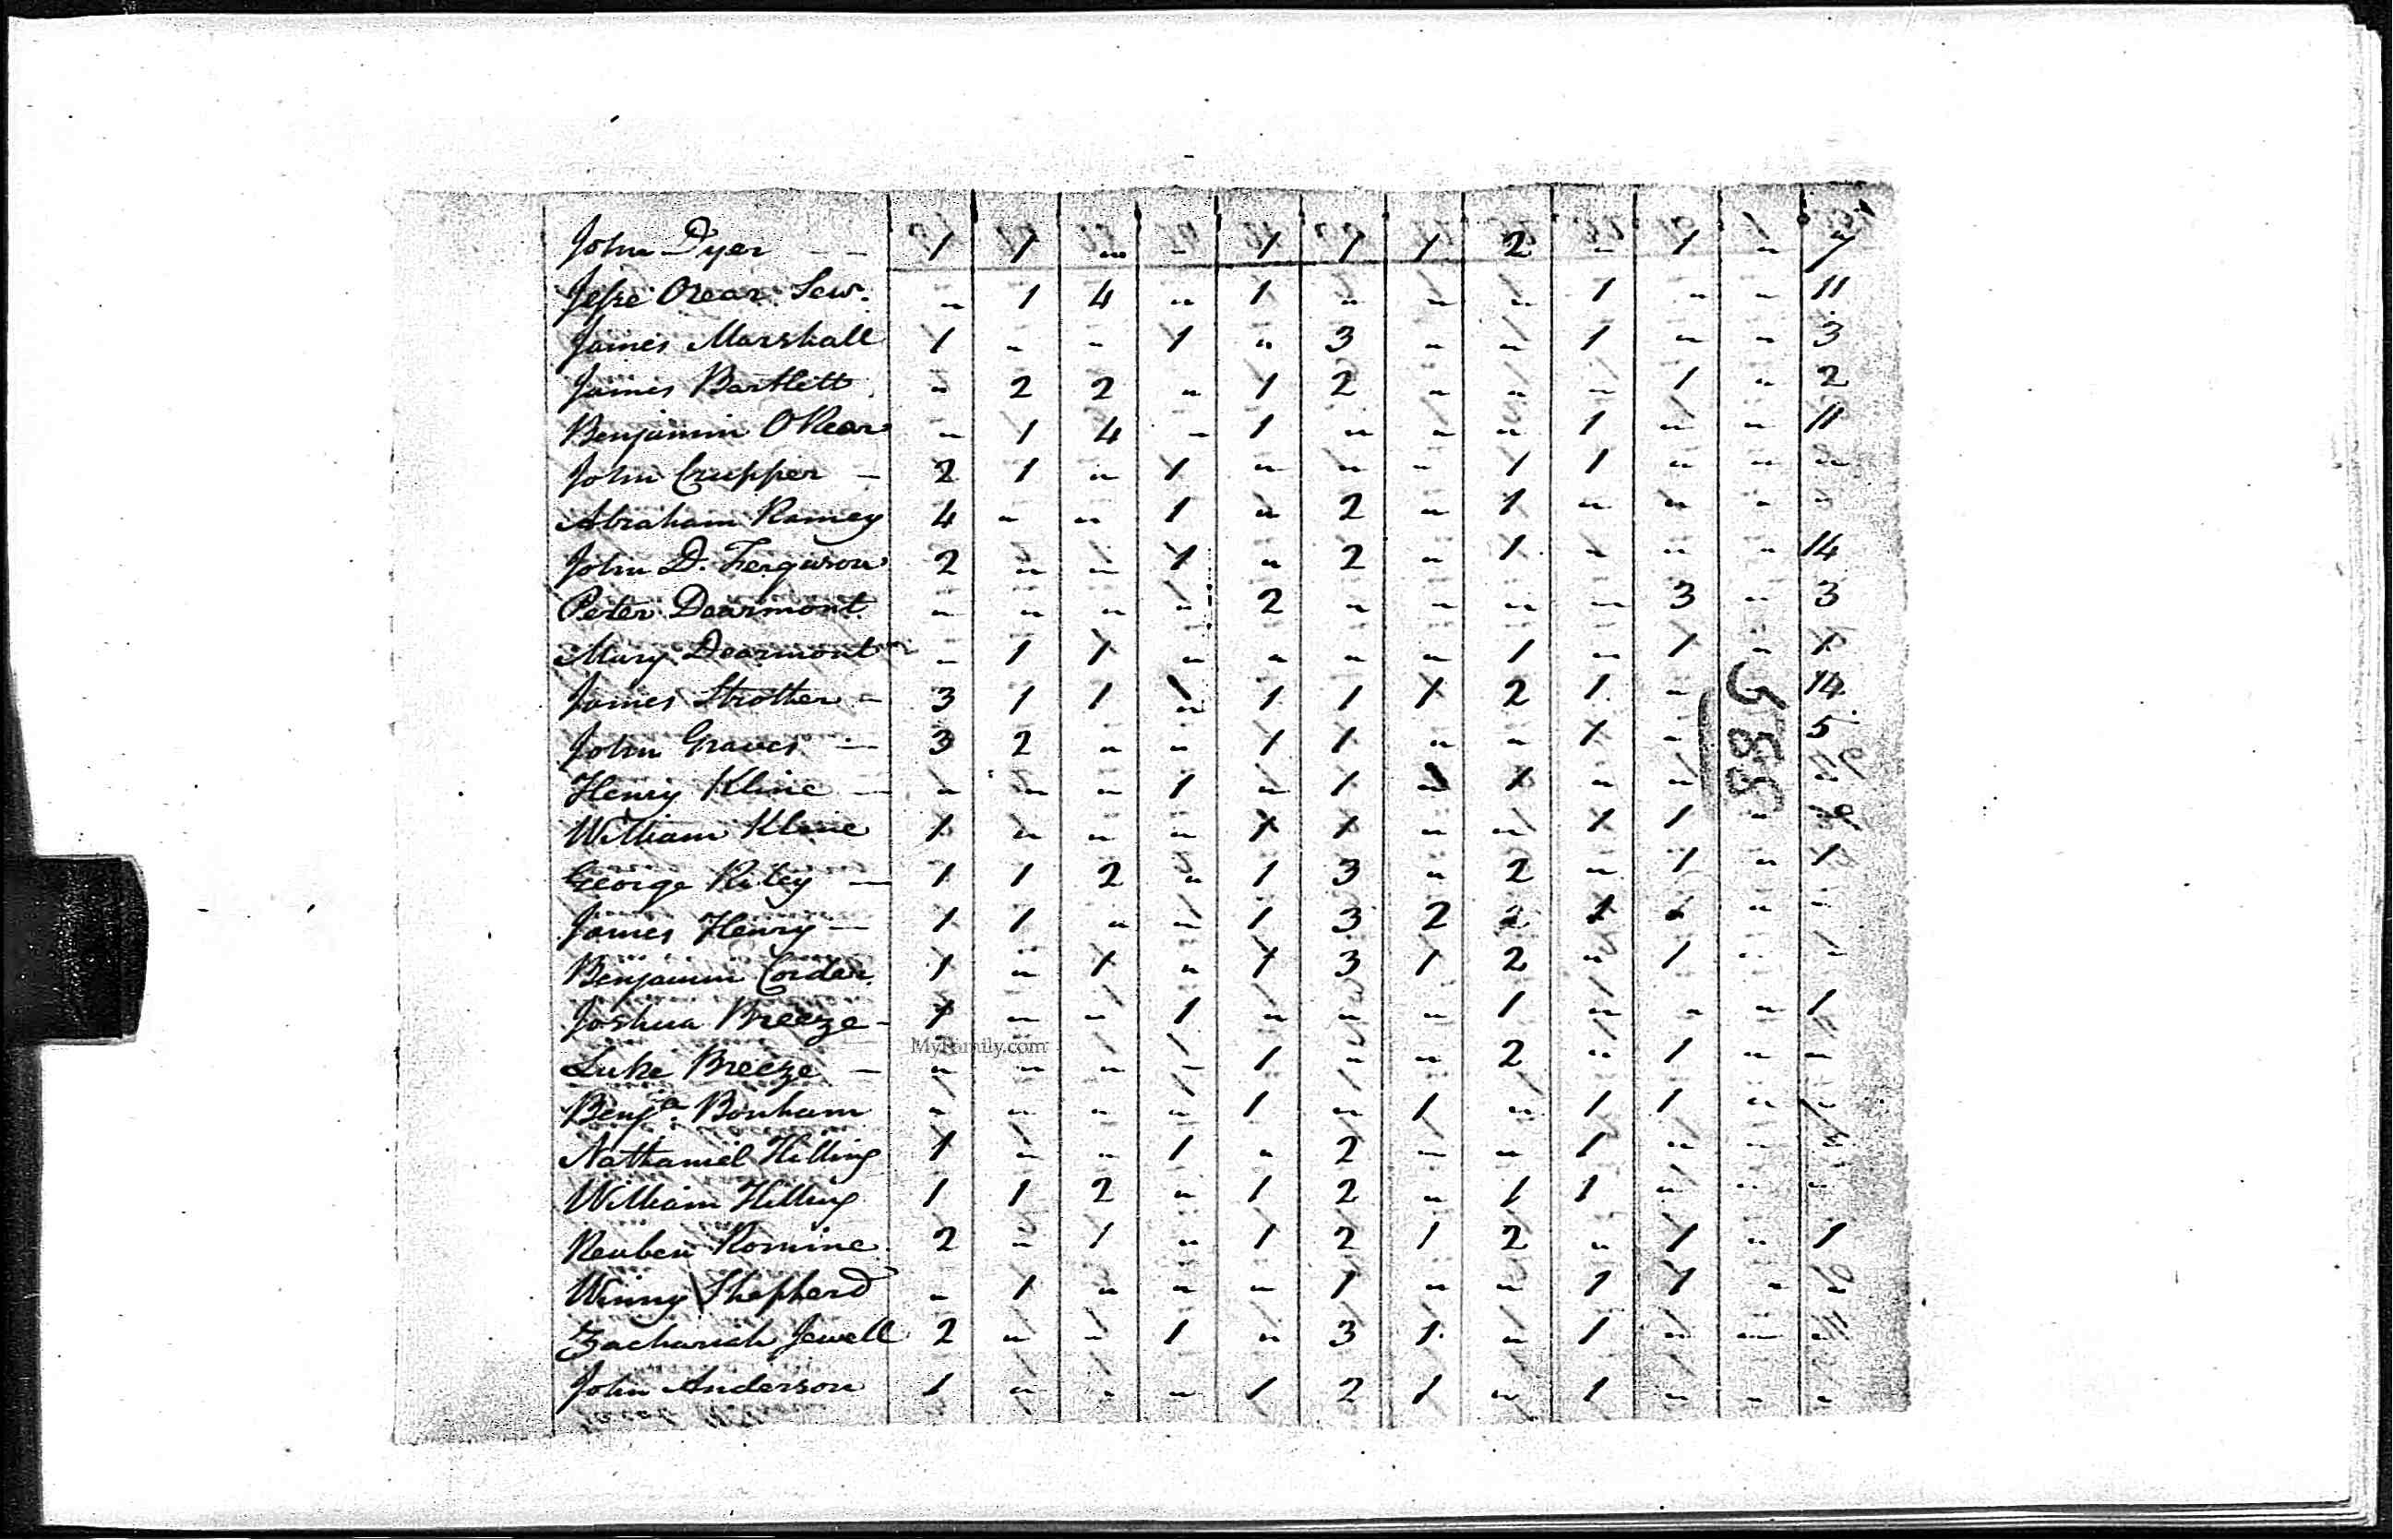 John Dyer - - 1 1 " " 1 1 1 2 " 1 " 7
Jesse Orear Sen. " 1 4 " 1 " " " 1 " " 11
James Marshall 1 " " 1 " 3 " " 1 " " 3
James Bartlett " 2 2 " 1 2 " " " 1 " 2
Benjamin ORear " 1 4 " 1 " " " 1 " " 11
John Crupper - 2 1 " 1 " " " 1 1 " " "
Abraham Ramey 4 " " 1 " 2 " 1 " " " "
John D. Ferguson 2 " " 1 " 2 " 1 " " " 14
Peter Dearmont " " " " 2 " " " " 3 " 3
Mary Dearmont " 1 1 " " " " 1 " 1 " 1
James Strother - 3 1 1 " 1 1 1 2 1 " 14
John Graves - 3 2 " " 1 1 " " 1 " 5
Henry Kline - " " " 1 " 1 " 1 " " "
588
William Kline 1 " " " 1 1 " " 1 1 "
George Riley - 1 1 2 " 1 3 " 2 " 1 " 1
James Henry - 1 1 " " 1 3 2 2 1 " " "
Benjamin Corder 1 " 1 " 1 3 1 2 " 1 " "
Joshua Breeze - 1 " " 1 " " " 1 " " " 1
MyFamily.com
Luke Breeze - " " " " 1 " " 2 " 1 " "
Benja. Bonham " " " " 1 " 1 " 1 1 " "
Nathaniel Hilling 1 " " 1 " 2 " " 1 " "
William Hilling 1 1 2 " 1 2 " 1 1 " " "
Reuben Romine 2 " 1 " 1 2 1 2 " 1 " 1
Winny Shepherd " 1 " " " 1 " " 1 1 "
Zachariah Jewell 2 " " 1 " 3 1 " 1 " " "
John Anderson 1 " " " 1 2 1 " 1 " " "